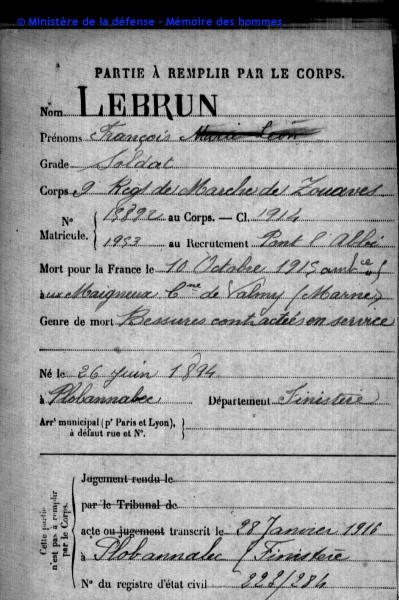 © Ministère de la défense - Mémoire des hommes
PARTIE À REMPLIR PAR LE CORPS.
Nom LEBRUN
Prénoms François Marie Léon
Grade Soldat
Corps 9 Regt de Marche de Zouaves
N° Matricule. { 18892 au Corps. — Cl. 1914
1953 au Recrutement Pont l'Abbé
Mort pour la France le 10 Octobre 1915
aux Maigneux Cne de Valmy (Marne)
Genre de mort Bessures contractées en service
Né le 26 Juin 1894
à Plobannalec Département Finistère
Arrt municipal (pr Paris et Lyon),
à défaut rue et N°.
Cette partie n'est pas à remplir par le Corps.
Jugement rendu le
par le Tribunal de
acte ou jugement transcrit le 28 Janvier 1916
à Plobannalec (Finistère
N° du registre d'état civil 223/284